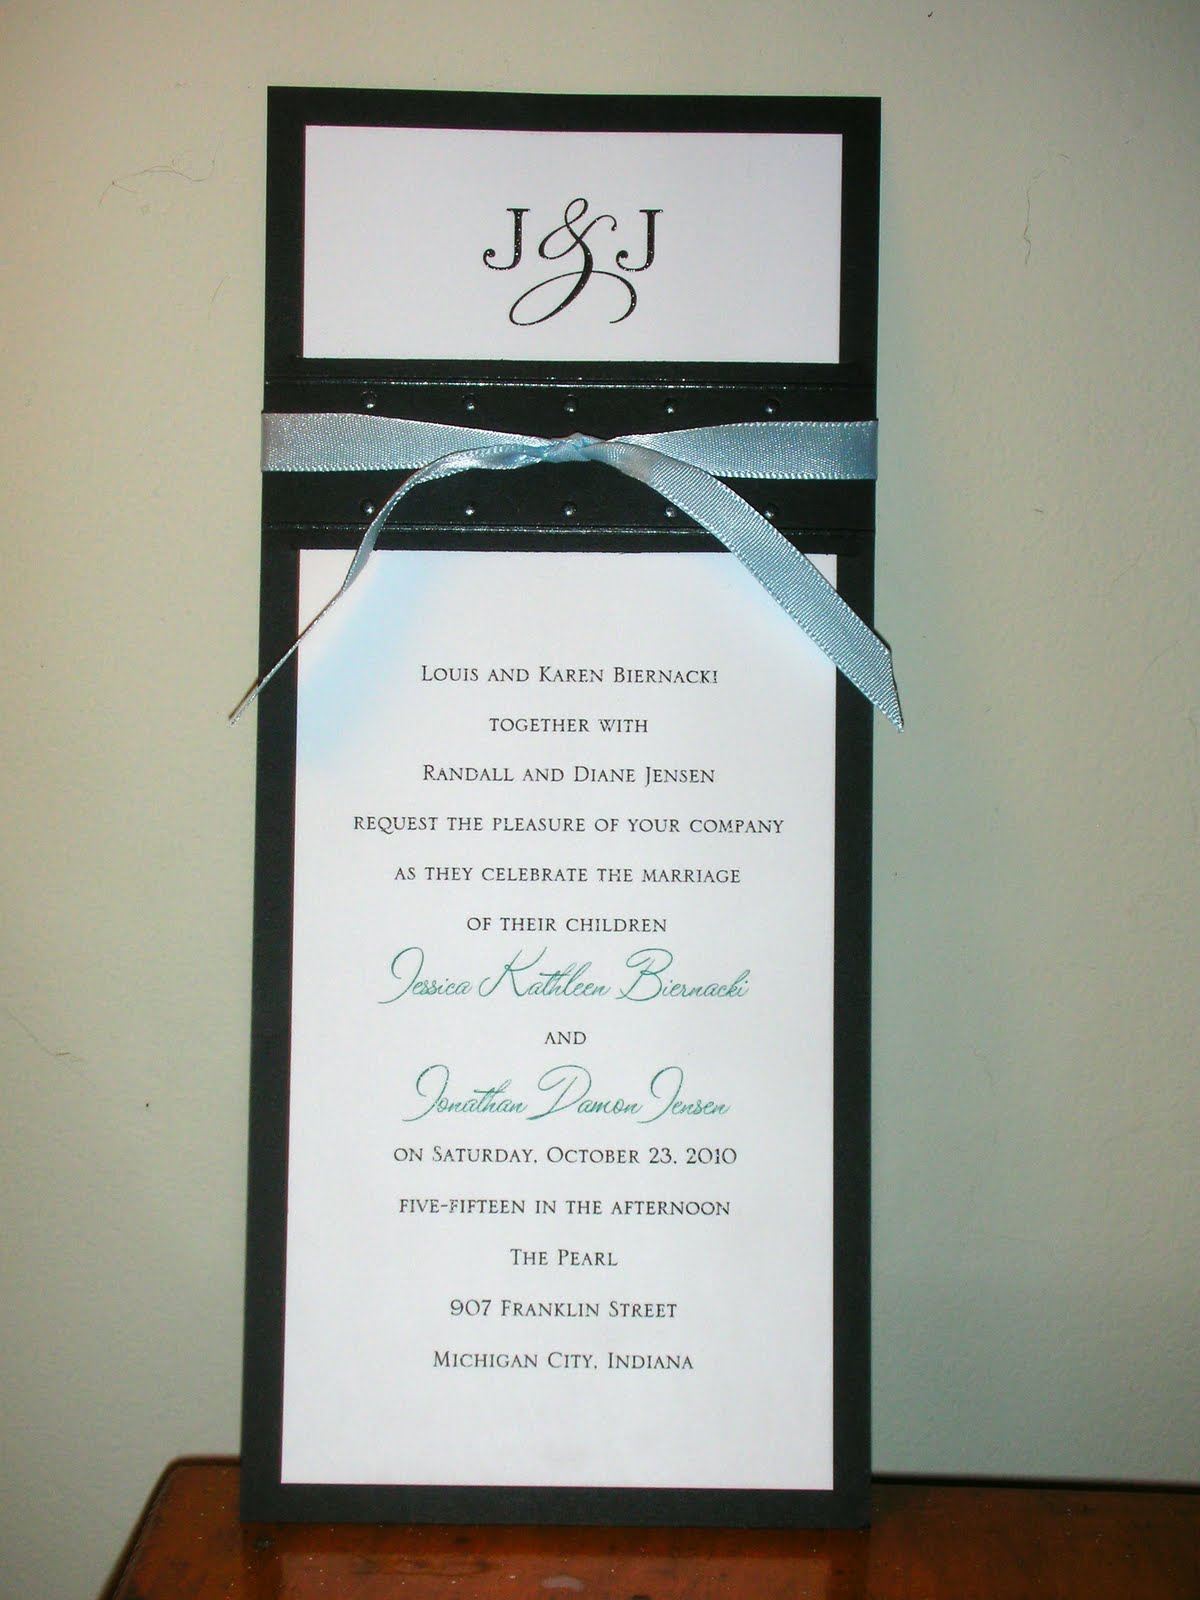 J & J
Louis and Karen Biernacki
together with
Randall and Diane Jensen
request the pleasure of your company
as they celebrate the marriage
of their children
Jessica Kathleen Biernacki
and
Jonathan Damon Jensen
on Saturday, October 23, 2010
five-fifteen in the afternoon
The Pearl
907 Franklin Street
Michigan City, Indiana